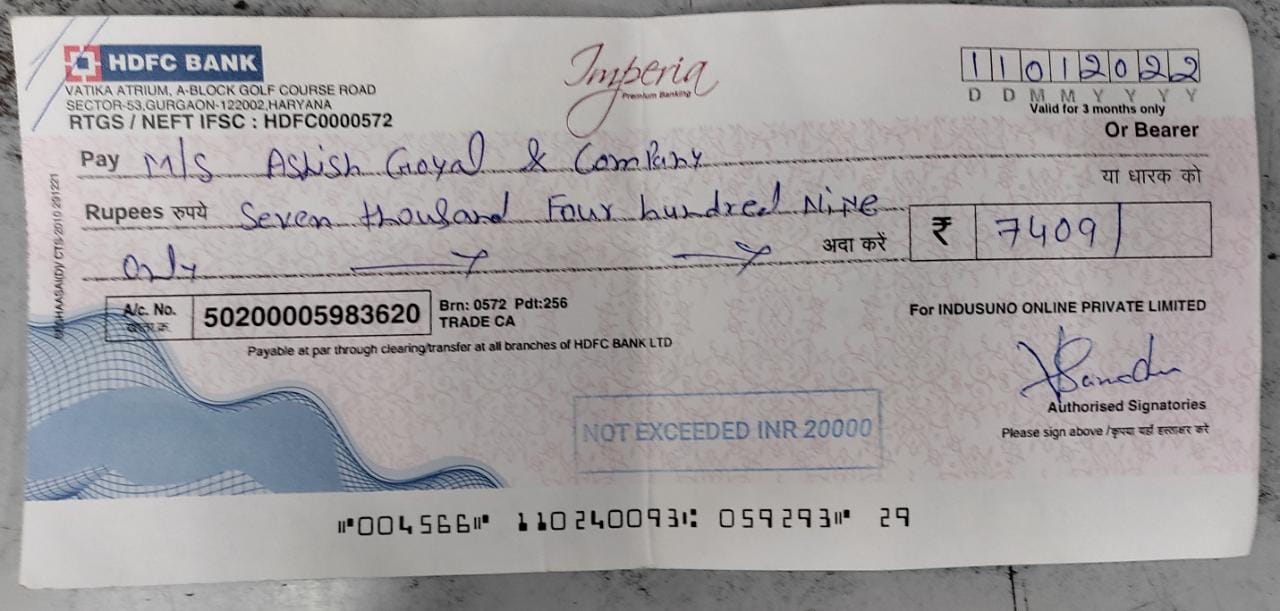 HDFC BANK
VATIKA ATRIUM, A-BLOCK GOLF COURSE ROAD
SECTOR-53,GURGAON-122002,HARYANA
RTGS / NEFT IFSC : HDFC0000572
Imperia
Premium Banking
11012022
D D M M Y Y Y Y
Valid for 3 months only
Or Bearer
Pay M/S Ashish Goyal & Company
या धारक को
Rupees रुपये Seven thousand Four hundred Nine
only अदा करें ₹ 7409/
A/c. No. 50200005983620 Brn: 0572 Pdt:256
TRADE CA
Payable at par through clearing/transfer at all branches of HDFC BANK LTD
For INDUSUNO ONLINE PRIVATE LIMITED
Authorised Signatories
Please sign above / कृपया यहाँ हस्ताक्षर करें
NOT EXCEEDED INR 20000
⑈004566⑈ 110240093⑆ 059293⑈ 29
CTS-2010 291221